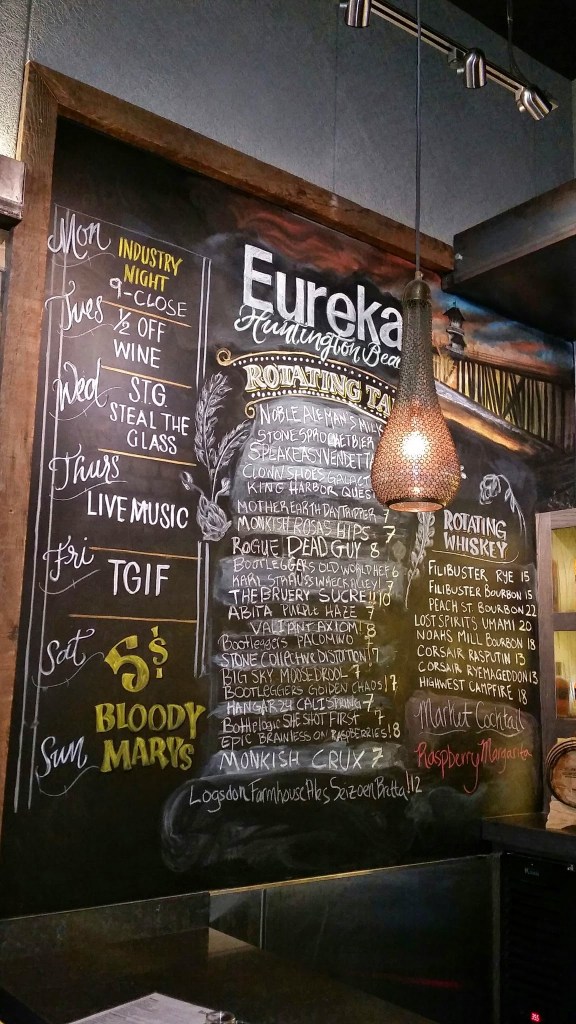 Mon
INDUSTRY
NIGHT
9-CLOSE
Tues
1/2 OFF
WINE
Wed
STG
STEAL THE
GLASS
Thurs
LIVE MUSIC
Fri
TGIF
Sat
5$
BLOODY
MARYS
Sun
Eureka
Huntington Bea
ROTATING TA
NOBLE ALEMAN'S MILK
STONE SPROCKETBIER
SPEAKEASY VENDETT
CLOWN SHOES GALACT
KING HARBOR QUES
MOTHER EARTH DAY TRIPPER 7
MONKISH ROSAS HIPS 7
ROGUE DEAD GUY 8
BOOTLEGGERS OLD WORLD HEF 6
KARL STRAUSS WRECK ALLEY 7
THE BRUERY SUCRE!! 10
ABITA PURPLE HAZE 7
VALIANT AXIOM 8
Bootleggers PALOMINO 7
STONE COLLECTIVE DISTORTION! 7
BIG SKY MOOSE DROOL 7
BOOTLEGGERS GOLDEN CHAOS! 7
HANGAR 24 CALI SPRING 7
Bottlelogic SHE SHOT FIRST 7
EPIC BRAINLESS ON RASPBERRIES! 8
MONKISH CRUX 7
Logsdon Farmhouse Ales Seizoen Bretta! 12
ROTATING
WHISKEY
FILIBUSTER RYE 15
FILIBUSTER BOURBON 15
PEACH ST BOURBON 22
LOST SPIRITS UMAMI 20
NOAHS MILL BOURBON 18
CORSAIR RASPUTIN 13
CORSAIR RYEMAGEDDON 13
HIGHWEST CAMPFIRE 18
Market Cocktail
Raspberry Margarita